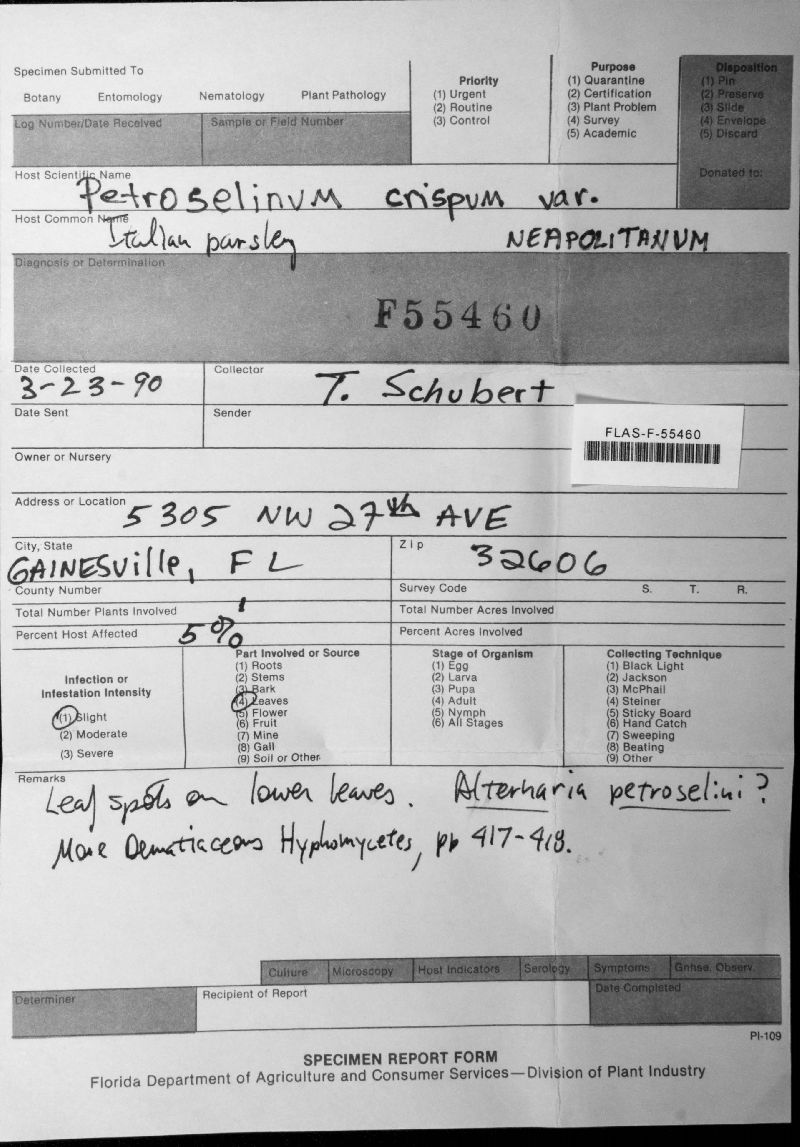 Specimen Submitted To
Botany Entomology Nematology Plant Pathology
Priority
(1) Urgent
(2) Routine
(3) Control
Purpose
(1) Quarantine
(2) Certification
(3) Plant Problem
(4) Survey
(5) Academic
Disposition
(1) Pin
(2) Preserve
(3) Slide
(4) Envelope
(5) Discard
Log Number/Date Received
Sample or Field Number
Donated to:
Host Scientific Name
Petroselinum crispum var.
NEAPOLITANUM
Host Common Name
Italian parsley
Diagnosis or Determination
F55460
Date Collected
3-23-90
Collector
T. Schubert
Date Sent
Sender
FLAS-F-55460
Owner or Nursery
Address or Location
5305 NW 27th AVE
City, State
GAINESville, FL
Zip
32606
County Number
Survey Code S. T. R.
Total Number Plants Involved 1
Total Number Acres Involved
Percent Host Affected 5%
Percent Acres Involved
Infection or
Infestation Intensity
(1) Slight
(2) Moderate
(3) Severe
Part Involved or Source
(1) Roots
(2) Stems
(3) Bark
(4) Leaves
(5) Flower
(6) Fruit
(7) Mine
(8) Gall
(9) Soil or Other
Stage of Organism
(1) Egg
(2) Larva
(3) Pupa
(4) Adult
(5) Nymph
(6) All Stages
Collecting Technique
(1) Black Light
(2) Jackson
(3) McPhail
(4) Steiner
(5) Sticky Board
(6) Hand Catch
(7) Sweeping
(8) Beating
(9) Other
Remarks
Leaf spots on lower leaves. Alternaria petroselini?
More Dematiaceous Hyphomycetes, pp 417-418.
Culture Microscopy Host Indicators Serology Symptoms Gnhse. Observ.
Determiner
Recipient of Report
Date Completed
PI-109
SPECIMEN REPORT FORM
Florida Department of Agriculture and Consumer Services—Division of Plant Industry